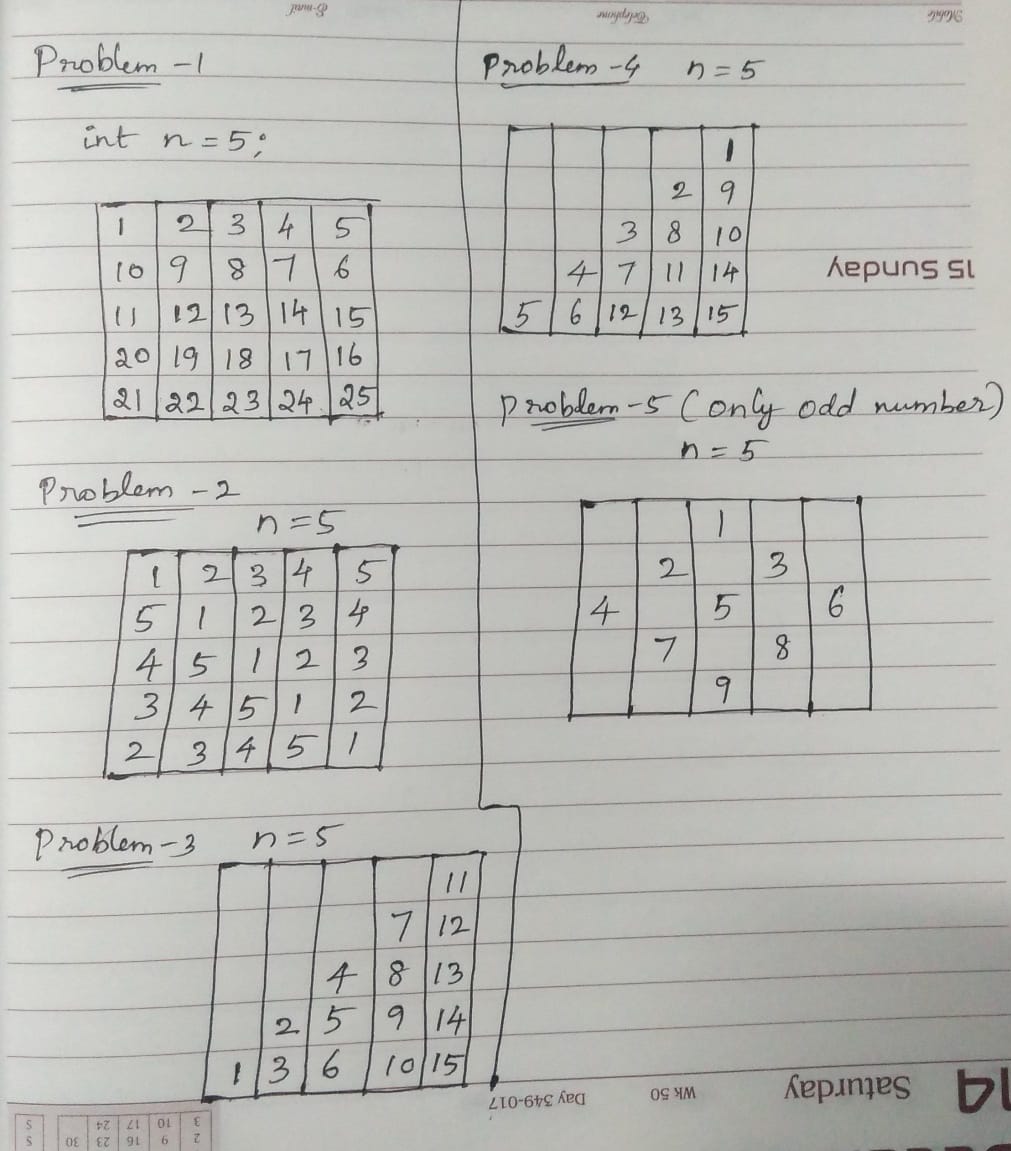 E-mail
Telephone
Mobile
Problem - 1
int n = 5;
1 2 3 4 5
10 9 8 7 6
11 12 13 14 15
20 19 18 17 16
21 22 23 24 25
Problem - 2
n = 5
1 2 3 4 5
5 1 2 3 4
4 5 1 2 3
3 4 5 1 2
2 3 4 5 1
Problem - 3 n = 5
11
7 12
4 8 13
2 5 9 14
1 3 6 10 15
Problem - 4 n = 5
1
2 9
3 8 10
4 7 11 14
5 6 12 13 15
15 Sunday
Problem - 5 (only odd number)
n = 5
1
2 3
4 5 6
7 8
9
14 Saturday
Wk 50
Day 349-017
S 2 9 16 23 30
S 3 10 17 24